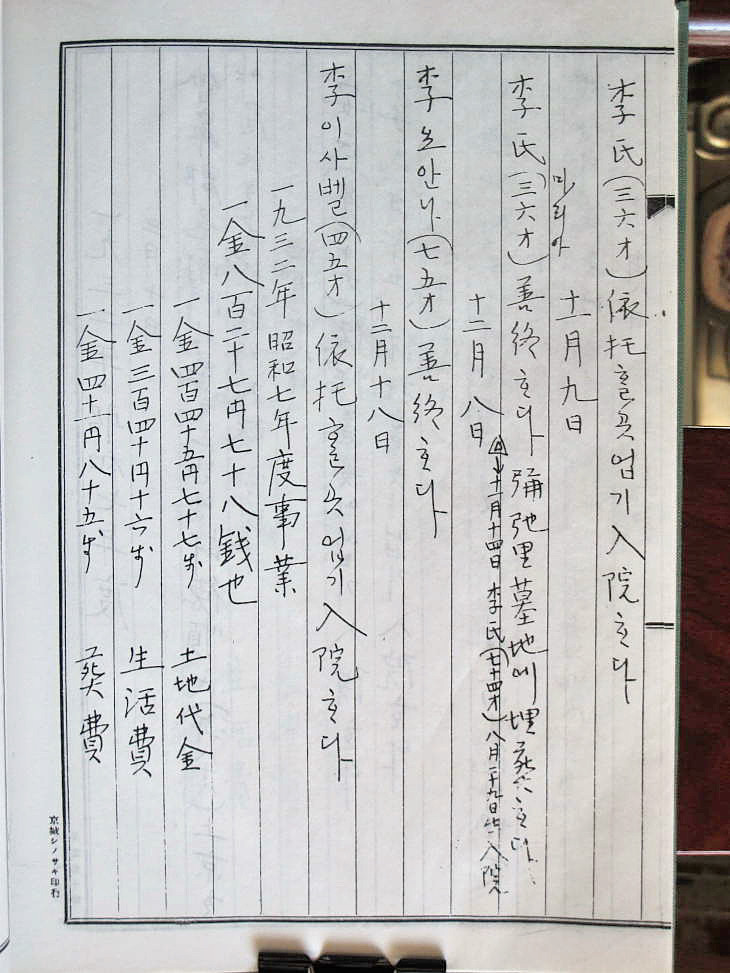 李氏(三六才)依托ᄒᆞᆯ곳업기入院ᄒᆞ다
十一月九日
마리아
李氏(三六才)善終ᄒᆞ다 彌弛里墓地에埋葬ᄒᆞ다
十二月八日
十一月十四日 李氏(七十四才)八月二十九日 入院
李요안나(七五才)善終ᄒᆞ다
十二月十八日
李이사벨(四五才)依托ᄒᆞᆯ곳업기入院ᄒᆞ다
一九三二年昭和七年度事業
一金八百二十七円七十八銭也
一金四百四十五円七十七戋 土地代金
一金三百四十円十六戋 生活費
一金四十一円八十五戋 葬費
京城シノサキ印行